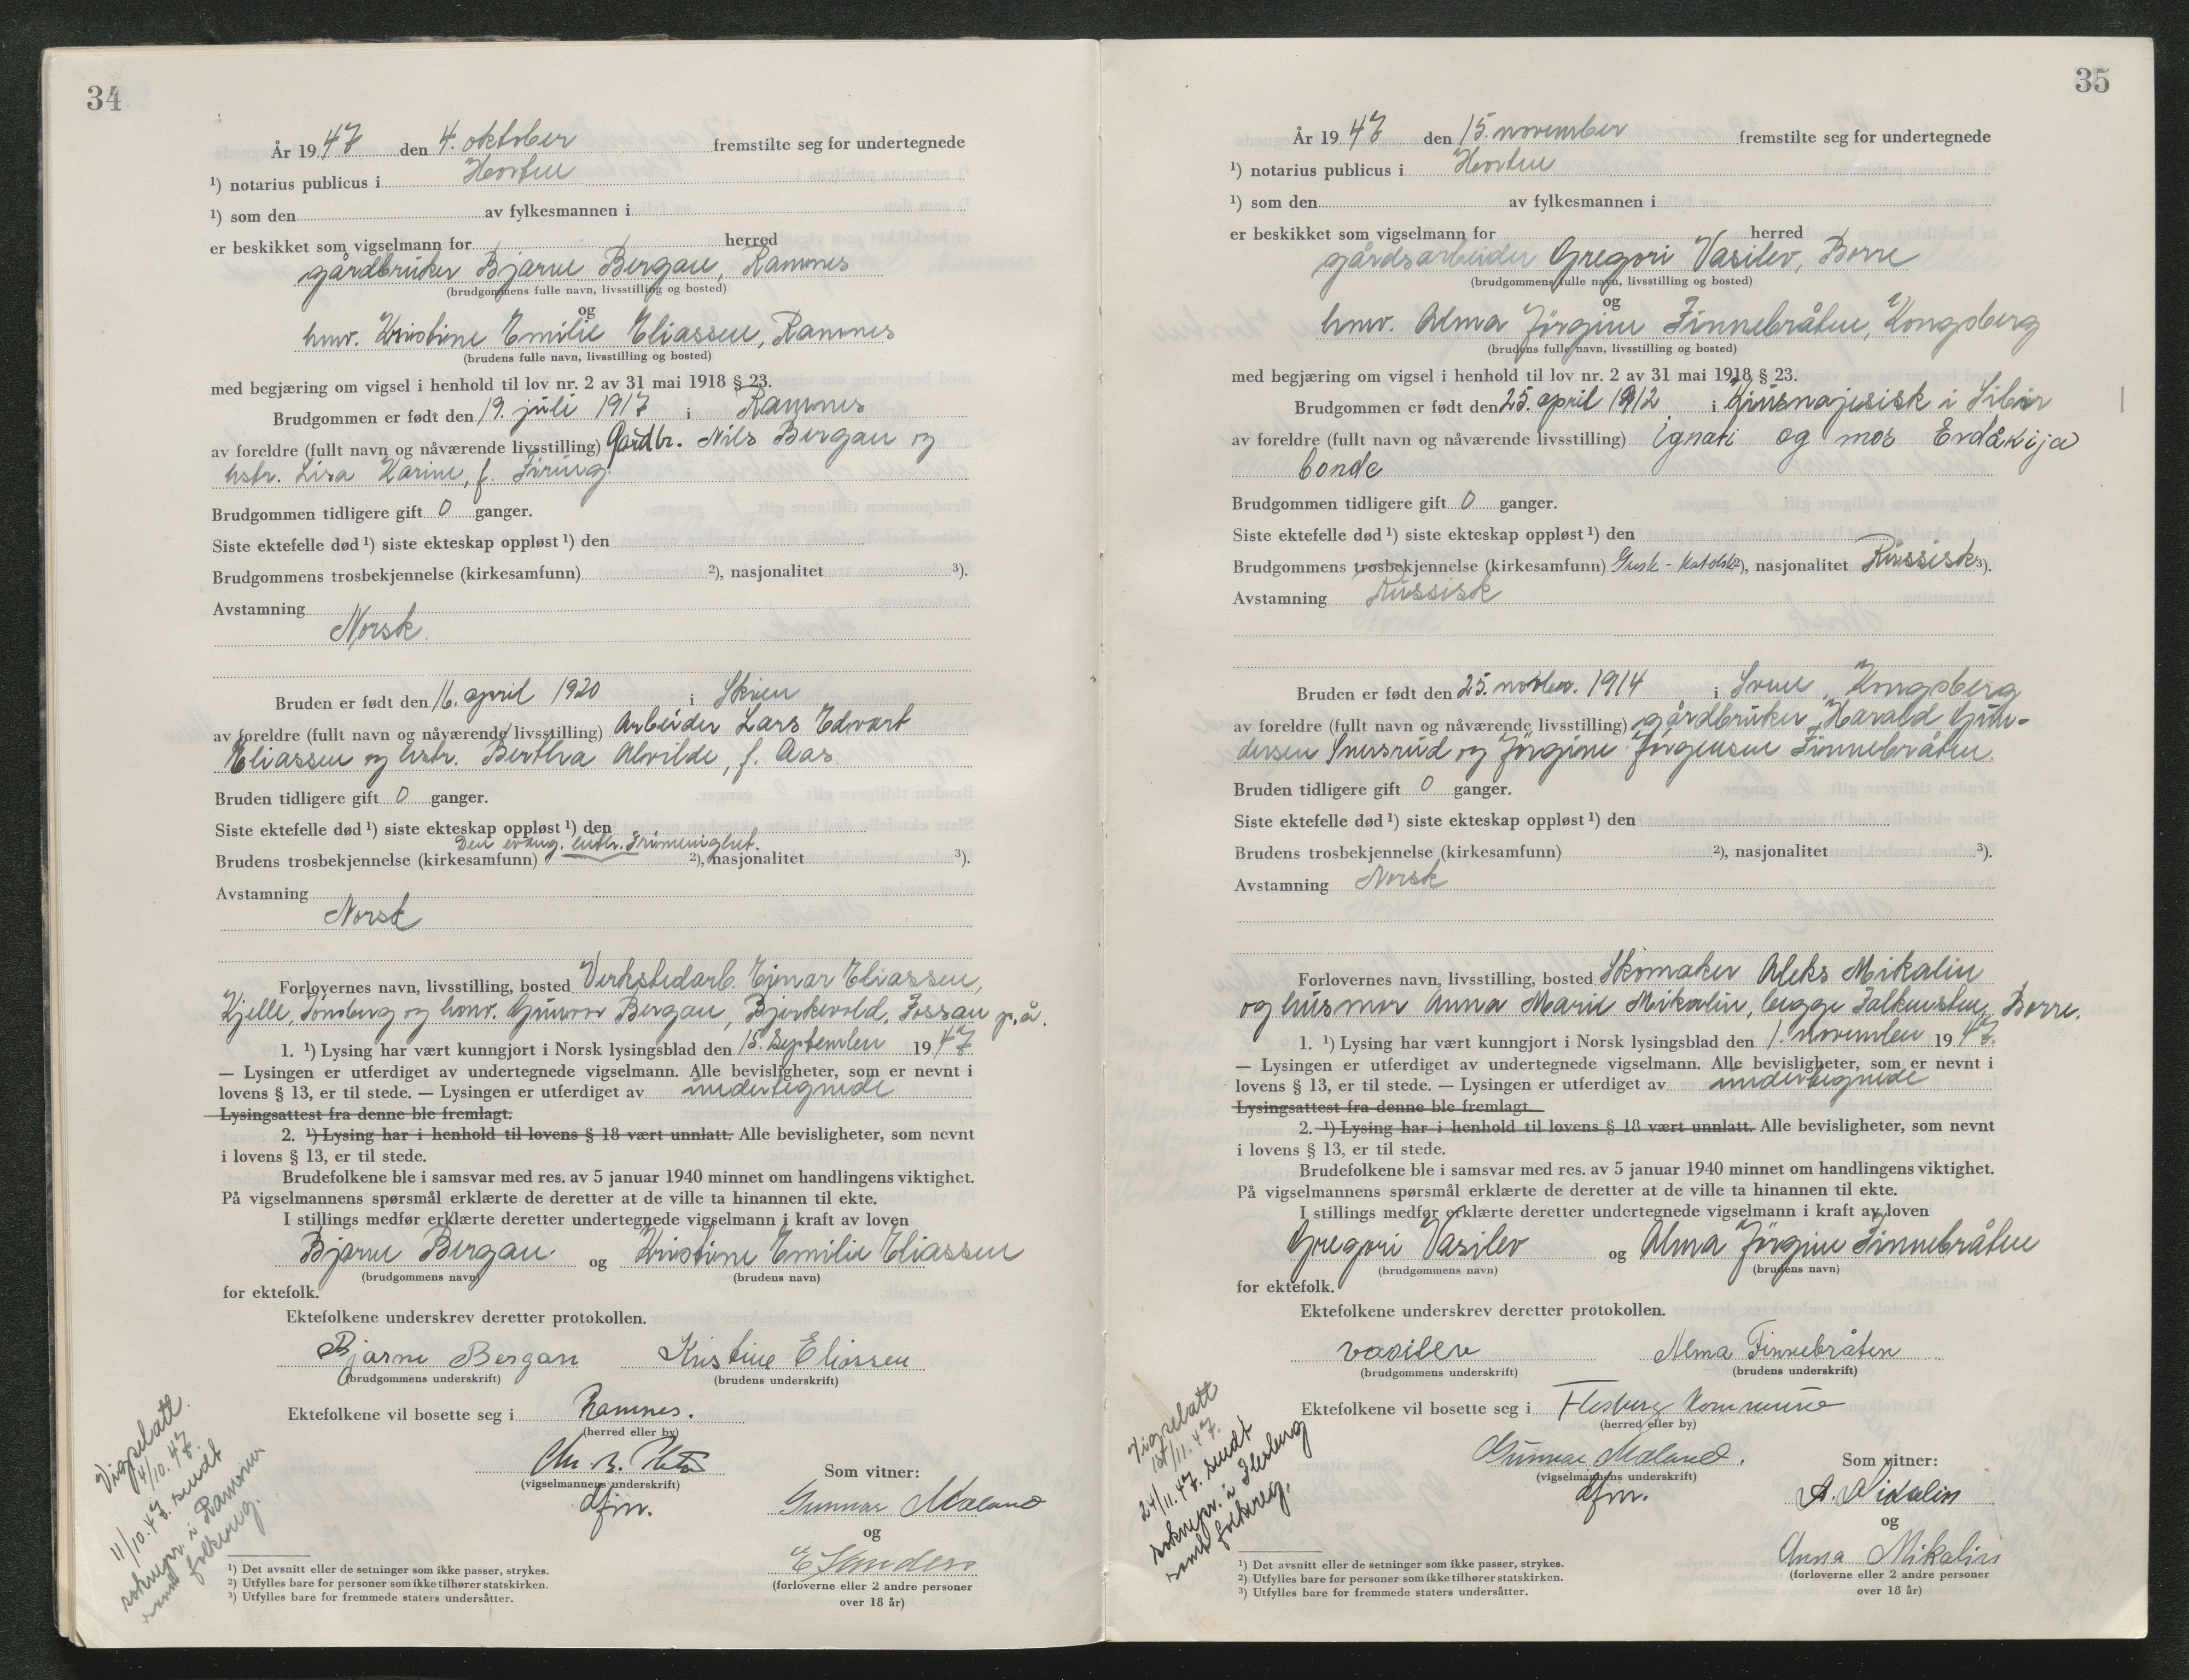 34
År 1947 den 4. oktober fremstilte seg for undertegnede
¹) notarius publicus i Horten
¹) som den av fylkesmannen i
er beskikket som vigselmann for herred
gårdbruker Bjarne Bergan, Ramnes
(brudgommens fulle navn, livsstilling og bosted)
og
hmv. Kristine Emilie Eliassen, Ramnes
(brudens fulle navn, livsstilling og bosted)
med begjæring om vigsel i henhold til lov nr. 2 av 31 mai 1918 § 23.
Brudgommen er født den 19. juli 1917 i Ramnes
av foreldre (fullt navn og nåværende livsstilling) Gårdbr. Nils Bergan og
hstr. Lisa Karine, f. Firing.
Brudgommen tidligere gift 0 ganger.
Siste ektefelle død ¹) siste ekteskap oppløst ¹) den
Brudgommens trosbekjennelse (kirkesamfunn) ²), nasjonalitet ³).
Avstamning
Norsk
Bruden er født den 16. april 1920 i Skien
av foreldre (fullt navn og nåværende livsstilling) Arbeider Lars Edvart
Eliassen og hstr. Berthra Alvilde, f. Aas.
Bruden tidligere gift 0 ganger.
Siste ektefelle død ¹) siste ekteskap oppløst ¹) den
Den evang. luth. Frimenighet.
Brudens trosbekjennelse (kirkesamfunn) ²), nasjonalitet ³).
Avstamning
Norsk
Forlovernes navn, livsstilling, bosted Verkstedarb. Ejnar Eliassen,
Kjelle, Tønsberg og hmv. Gunvor Bergan, Bjerkevold, Fossan p.å.
1. ¹) Lysing har vært kunngjort i Norsk lysingsblad den 15. September 1947
— Lysingen er utferdiget av undertegnede vigselmann. Alle bevisligheter, som er nevnt i
lovens § 13, er til stede. — Lysingen er utferdiget av undertegnede
Lysingsattest fra denne ble fremlagt.
2. ¹) Lysing har i henhold til lovens § 18 vært unnlatt. Alle bevisligheter, som nevnt
i lovens § 13, er til stede.
Brudefolkene ble i samsvar med res. av 5 januar 1940 minnet om handlingens viktighet.
På vigselmannens spørsmål erklærte de deretter at de ville ta hinannen til ekte.
I stillings medfør erklærte deretter undertegnede vigselmann i kraft av loven
Bjarne Bergan og Kristine Emilie Eliassen
(brudgommens navn) (brudens navn)
for ektefolk.
Ektefolkene underskrev deretter protokollen.
Bjarne Bergan Kristine Eliassen
(brudgommens underskrift) (brudens underskrift)
Ektefolkene vil bosette seg i Ramnes.
(herred eller by)
(vigselmannens underskrift)
dfm.
Som vitner:
Gunnar Maland
og
(forloverne eller 2 andre personer
over 18 år)
Vigselatt.
4/10.47.
11/10.47. sendt
soknepr. i Ramnes
samt folkereg.
¹) Det avsnitt eller de setninger som ikke passer, strykes.
²) Utfylles bare for personer som ikke tilhører statskirken.
³) Utfylles bare for fremmede staters undersåtter.
35
År 1947 den 15. november fremstilte seg for undertegnede
¹) notarius publicus i Horten
¹) som den av fylkesmannen i
er beskikket som vigselmann for herred
gårdsarbeider Gregori Vasilev, Borre
(brudgommens fulle navn, livsstilling og bosted)
og
hmv. Alma Jörgine Finnebråten, Kongsberg
(brudens fulle navn, livsstilling og bosted)
med begjæring om vigsel i henhold til lov nr. 2 av 31 mai 1918 § 23.
Brudgommen er født den 25. april 1912 i Kjusnajesisk i Sibir
av foreldre (fullt navn og nåværende livsstilling) ignati og mor Evdåkija
bonde
Brudgommen tidligere gift 0 ganger.
Siste ektefelle død ¹) siste ekteskap oppløst ¹) den
Brudgommens trosbekjennelse (kirkesamfunn) Gresk-katolsk ²), nasjonalitet Russisk ³).
Avstamning Russisk
Bruden er født den 25. novbr. 1914 i Svene, Kongsberg
av foreldre (fullt navn og nåværende livsstilling) gårdbruker Harald Gun-
dersen Snersrud og Jörgine Jörgensen Finnebråten.
Bruden tidligere gift 0 ganger.
Siste ektefelle død ¹) siste ekteskap oppløst ¹) den
Brudens trosbekjennelse (kirkesamfunn) ²), nasjonalitet ³).
Avstamning Norsk
Forlovernes navn, livsstilling, bosted Skomaker Aleks Mikalin
og husmor Anna Marie Mikalin, begge Falkensten, Borre.
1. ¹) Lysing har vært kunngjort i Norsk lysingsblad den 1. november 1947.
— Lysingen er utferdiget av undertegnede vigselmann. Alle bevisligheter, som er nevnt i
lovens § 13, er til stede. — Lysingen er utferdiget av undertegnede
Lysingsattest fra denne ble fremlagt.
2. ¹) Lysing har i henhold til lovens § 18 vært unnlatt. Alle bevisligheter, som nevnt
i lovens § 13, er til stede.
Brudefolkene ble i samsvar med res. av 5 januar 1940 minnet om handlingens viktighet.
På vigselmannens spørsmål erklærte de deretter at de ville ta hinannen til ekte.
I stillings medfør erklærte deretter undertegnede vigselmann i kraft av loven
Gregori Vasilev og Alma Jörgine Finnebråten
(brudgommens navn) (brudens navn)
for ektefolk.
Ektefolkene underskrev deretter protokollen.
vasilev Alma Finnebråten
(brudgommens underskrift) (brudens underskrift)
Ektefolkene vil bosette seg i Flesberg Kommune
(herred eller by)
Gunnar Maland.
(vigselmannens underskrift)
dfm.
Som vitner:
og
Anna Mikalin
(forloverne eller 2 andre personer
over 18 år)
Vigselatt
15/11.47.
24/11.47. sendt
soknepr. i Flesberg
samt folkereg.
¹) Det avsnitt eller de setninger som ikke passer, strykes.
²) Utfylles bare for personer som ikke tilhører statskirken.
³) Utfylles bare for fremmede staters undersåtter.